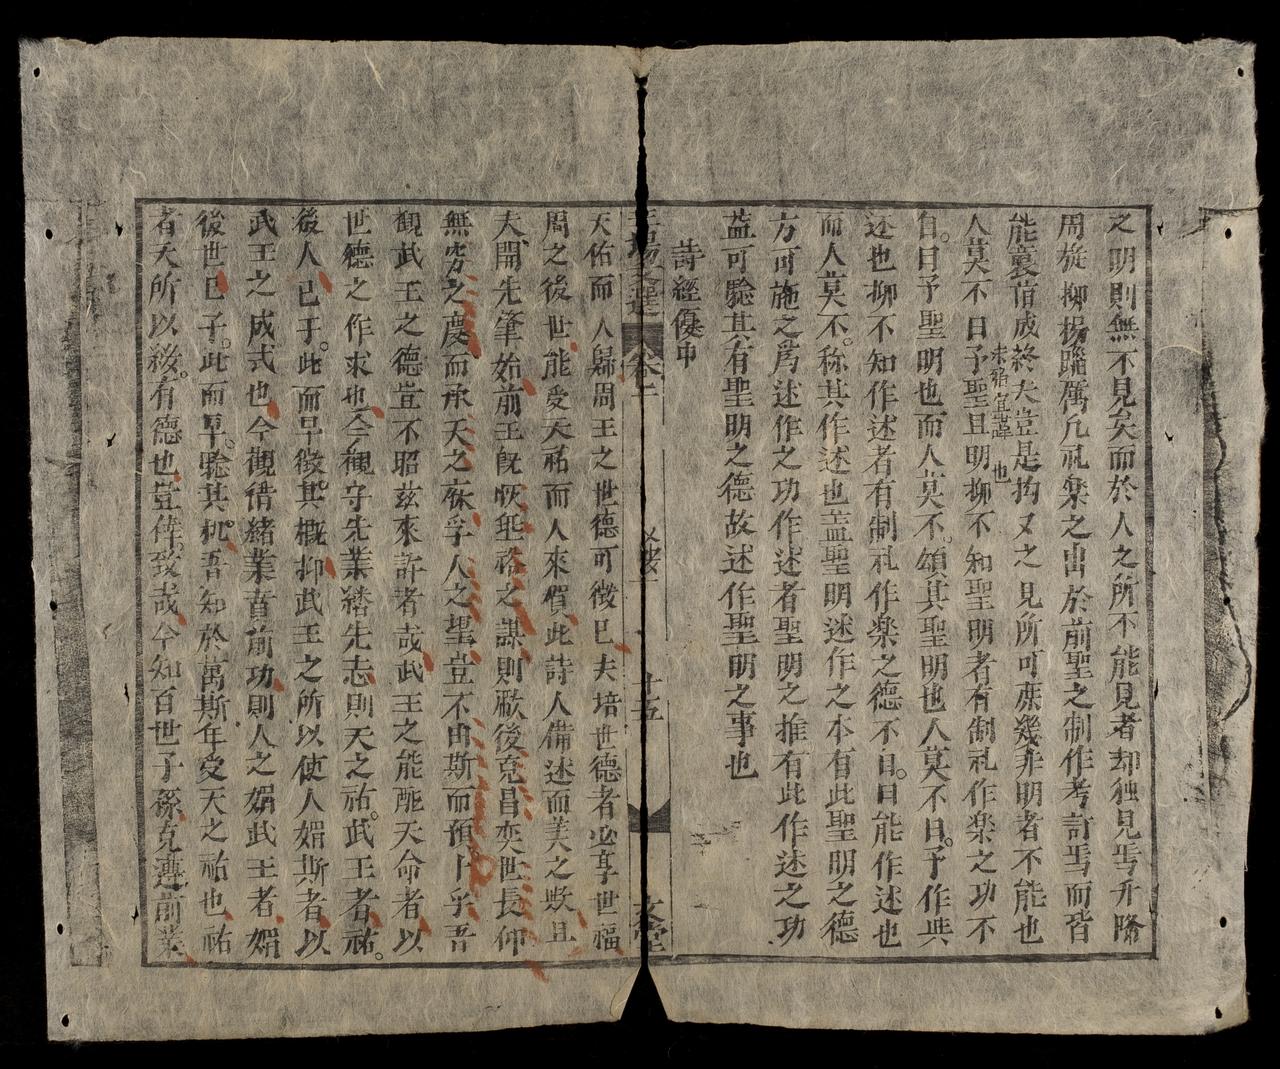 之明則無不見矣而於人之所不能見者却独見焉升降
周旋抑揚蹈厲凢礼楽之出於前聖之制作考訂焉而皆
能襄
成終夫豈是拘
之見所可庶幾非明者不能也
未稻宜諱也
人莫不日予聖且明抑不知聖明者有制礼作楽之功不
自。日予聖明也而人莫不。頌其聖明也人莫不日。予作與
述也抑不知作述者有制礼作楽之德不日。日能作述也
而人莫不。称其作述也盖聖明述作之本有此聖明之德
方可施之爲述作之功作述者聖明之推有此作述之功
益可驗其有聖明之德故述作聖明之事也
詩經優中
場文選
卷二
十五
文堂
天佑而人歸周王之世德可徵巳夫培世德者必享世福
周之後世能受天祐而人來賀此詩人備述而美之歟且
夫開先肇始前王旣恢垂裕之謀則厥後克昌奕世長仰
無穷之慶而承天之庥孚人之望豈不由斯而預卜乎吾
観武王之德豈不昭茲來許者哉武王之能配天命者以
世德之作求也今観守先業繼先志則天之祐。武王者祐。
後人已于。此而早徵。其概抑武王之所以使人媚斯者以
武王之成式也今觀
緒業者前功則人之媚武王者媚
後世已子。此而早。驗其机。吾知於萬斯年受天之祐也祐
者天所以綏。有德也豈倖。致哉今知百世子孫克遵前業